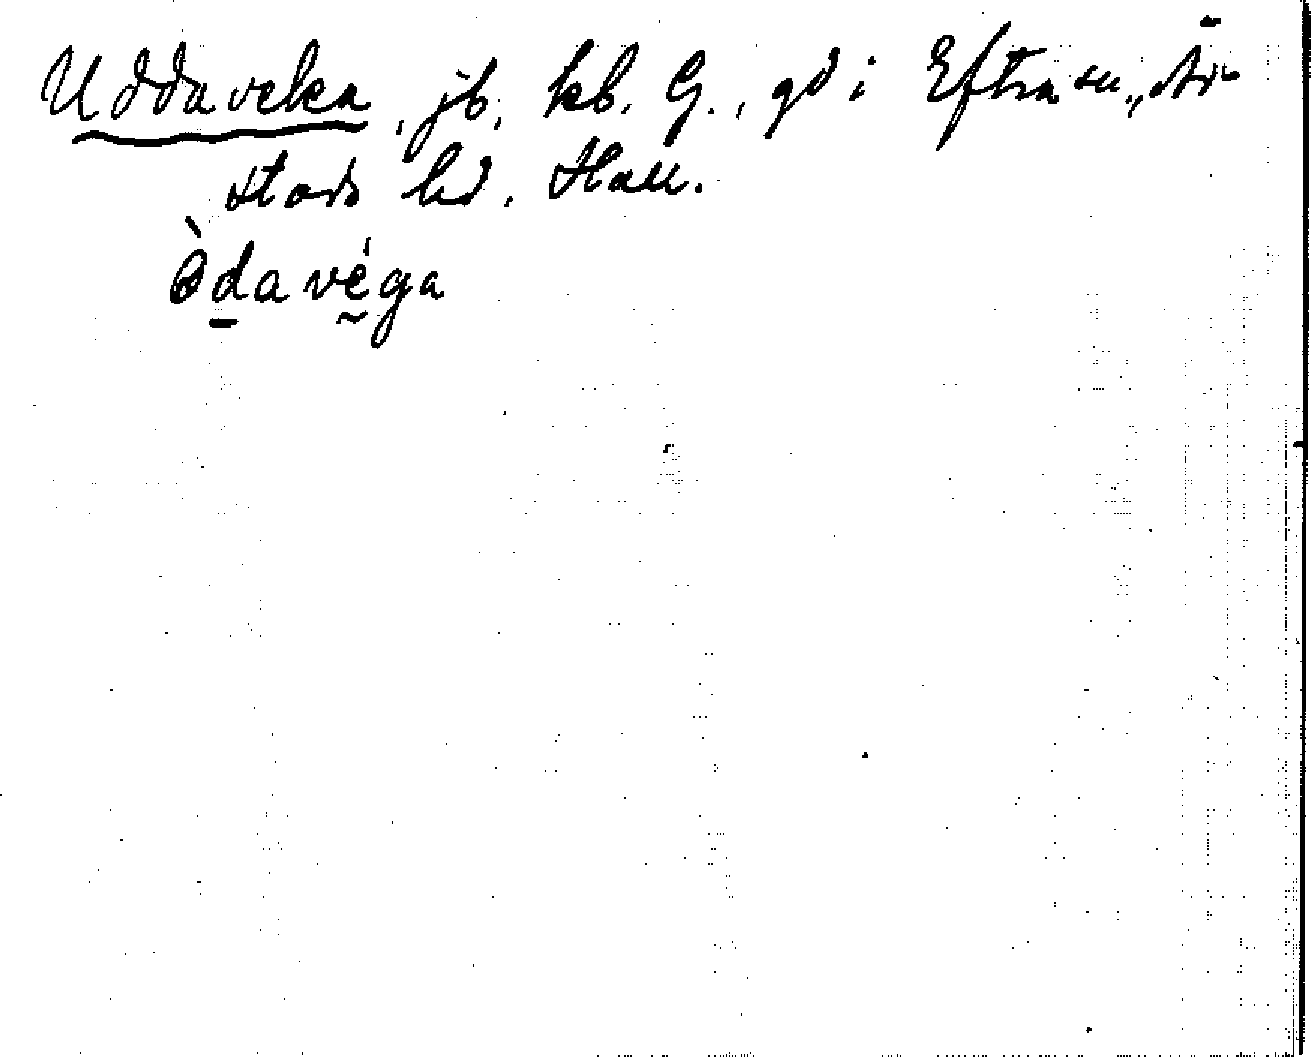 Uddaveka, jb, kb. G., gd i Eftra sn, År-
stads hd. Hall.
òdavéga